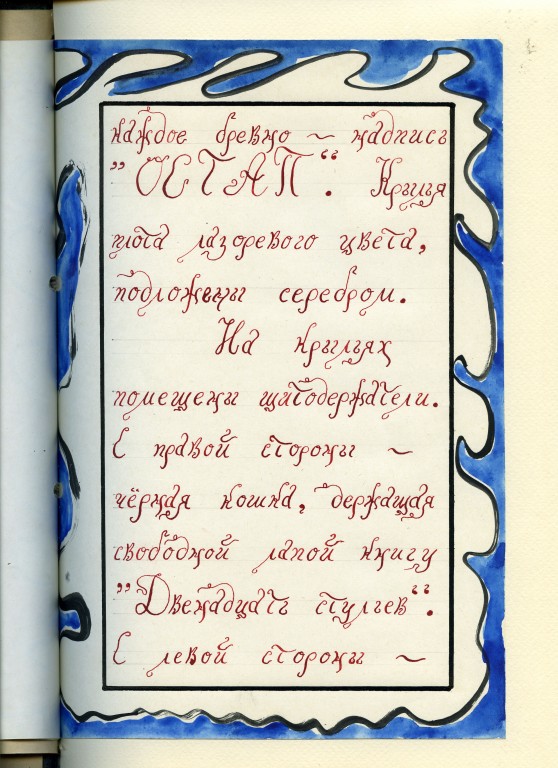 каждое бревно ~ надпись
"ОСТАП". Крылья
плота лазоревого цвета,
подложены серебром.
На крыльях
помещены щитодержатели.
С правой стороны ~
чёрная кошка, держащая
свободной лапой книгу
"Двенадцать стульев".
С левой стороны ~